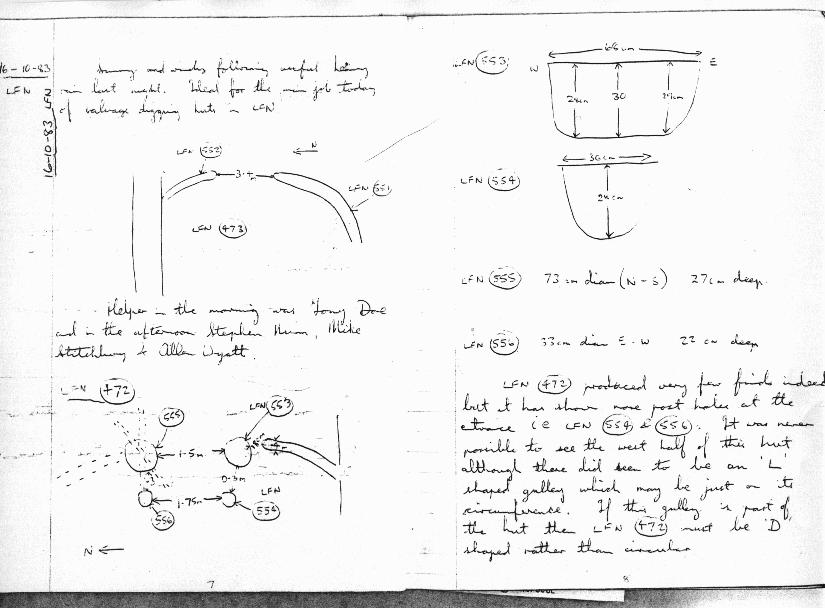 16-10-83
LFN
16-10-83 LFN
Sunny and windy following useful heavy
rain last night. Ideal for the main job today
of salvage digging huts in LFN
LFN 552
N
3.4m
LFN 551
LFN 473
Helper in the morning was Tony Doe
and in the afternoon Stephen Munn, Mike
Stitchbury & Allen Wyatt.
LFN 472
555
LFN 553
1.5m
0.3m
1.75m
LFN
554
556
N
7
LFN 553
68cm
W
E
24cm
30
24cm
36cm
LFN 554
24cm
LFN 555 73cm diam (N-S) 27cm deep.
LFN 556 33cm diam E-W 22 cm deep
LFN 472 produced very few finds indeed
but it has shown more post holes at the
entrance i.e LFN 554 & 556. It was never
possible to see the west half of this hut
although there did seem to be an 'L'
shaped gulley which may be just on its
circumference. If this gulley is part of
the hut then LFN 472 must be 'D'
shaped rather than circular
8